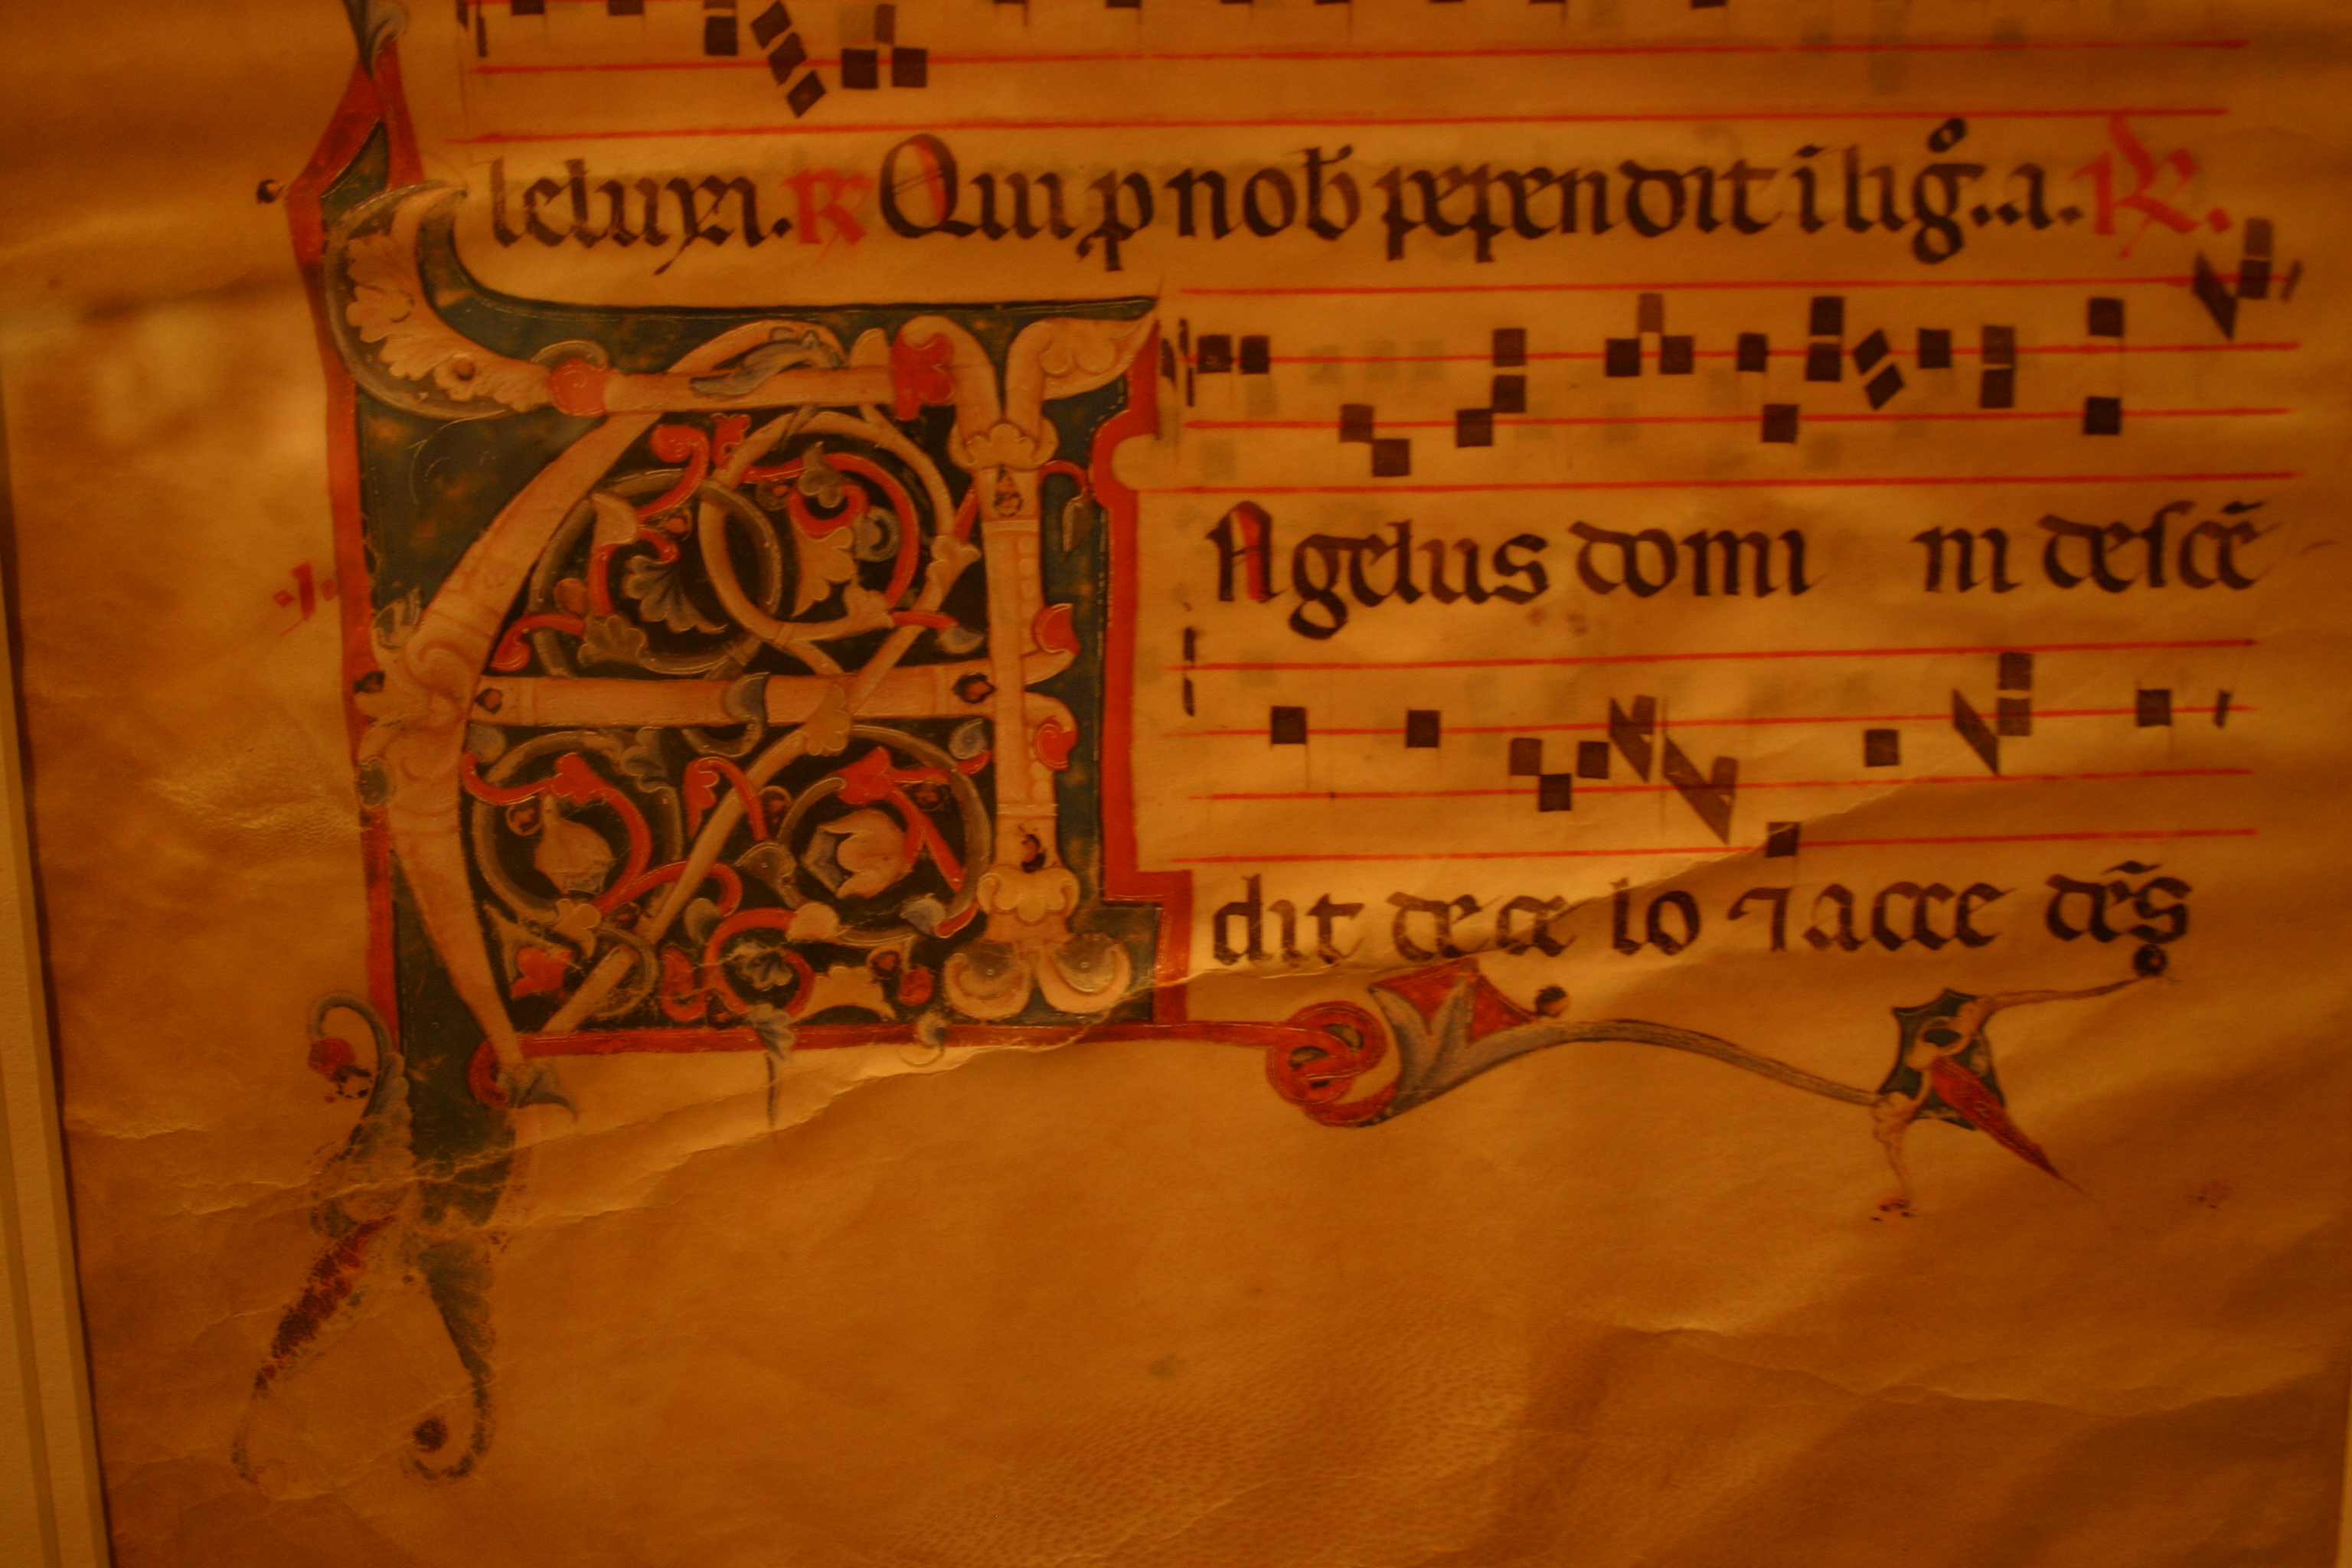 leluya. R Qui p nob pependit i lig̊. a. R.
Agelus domi ni descē
dit de ce lo ⁊ acce dēs